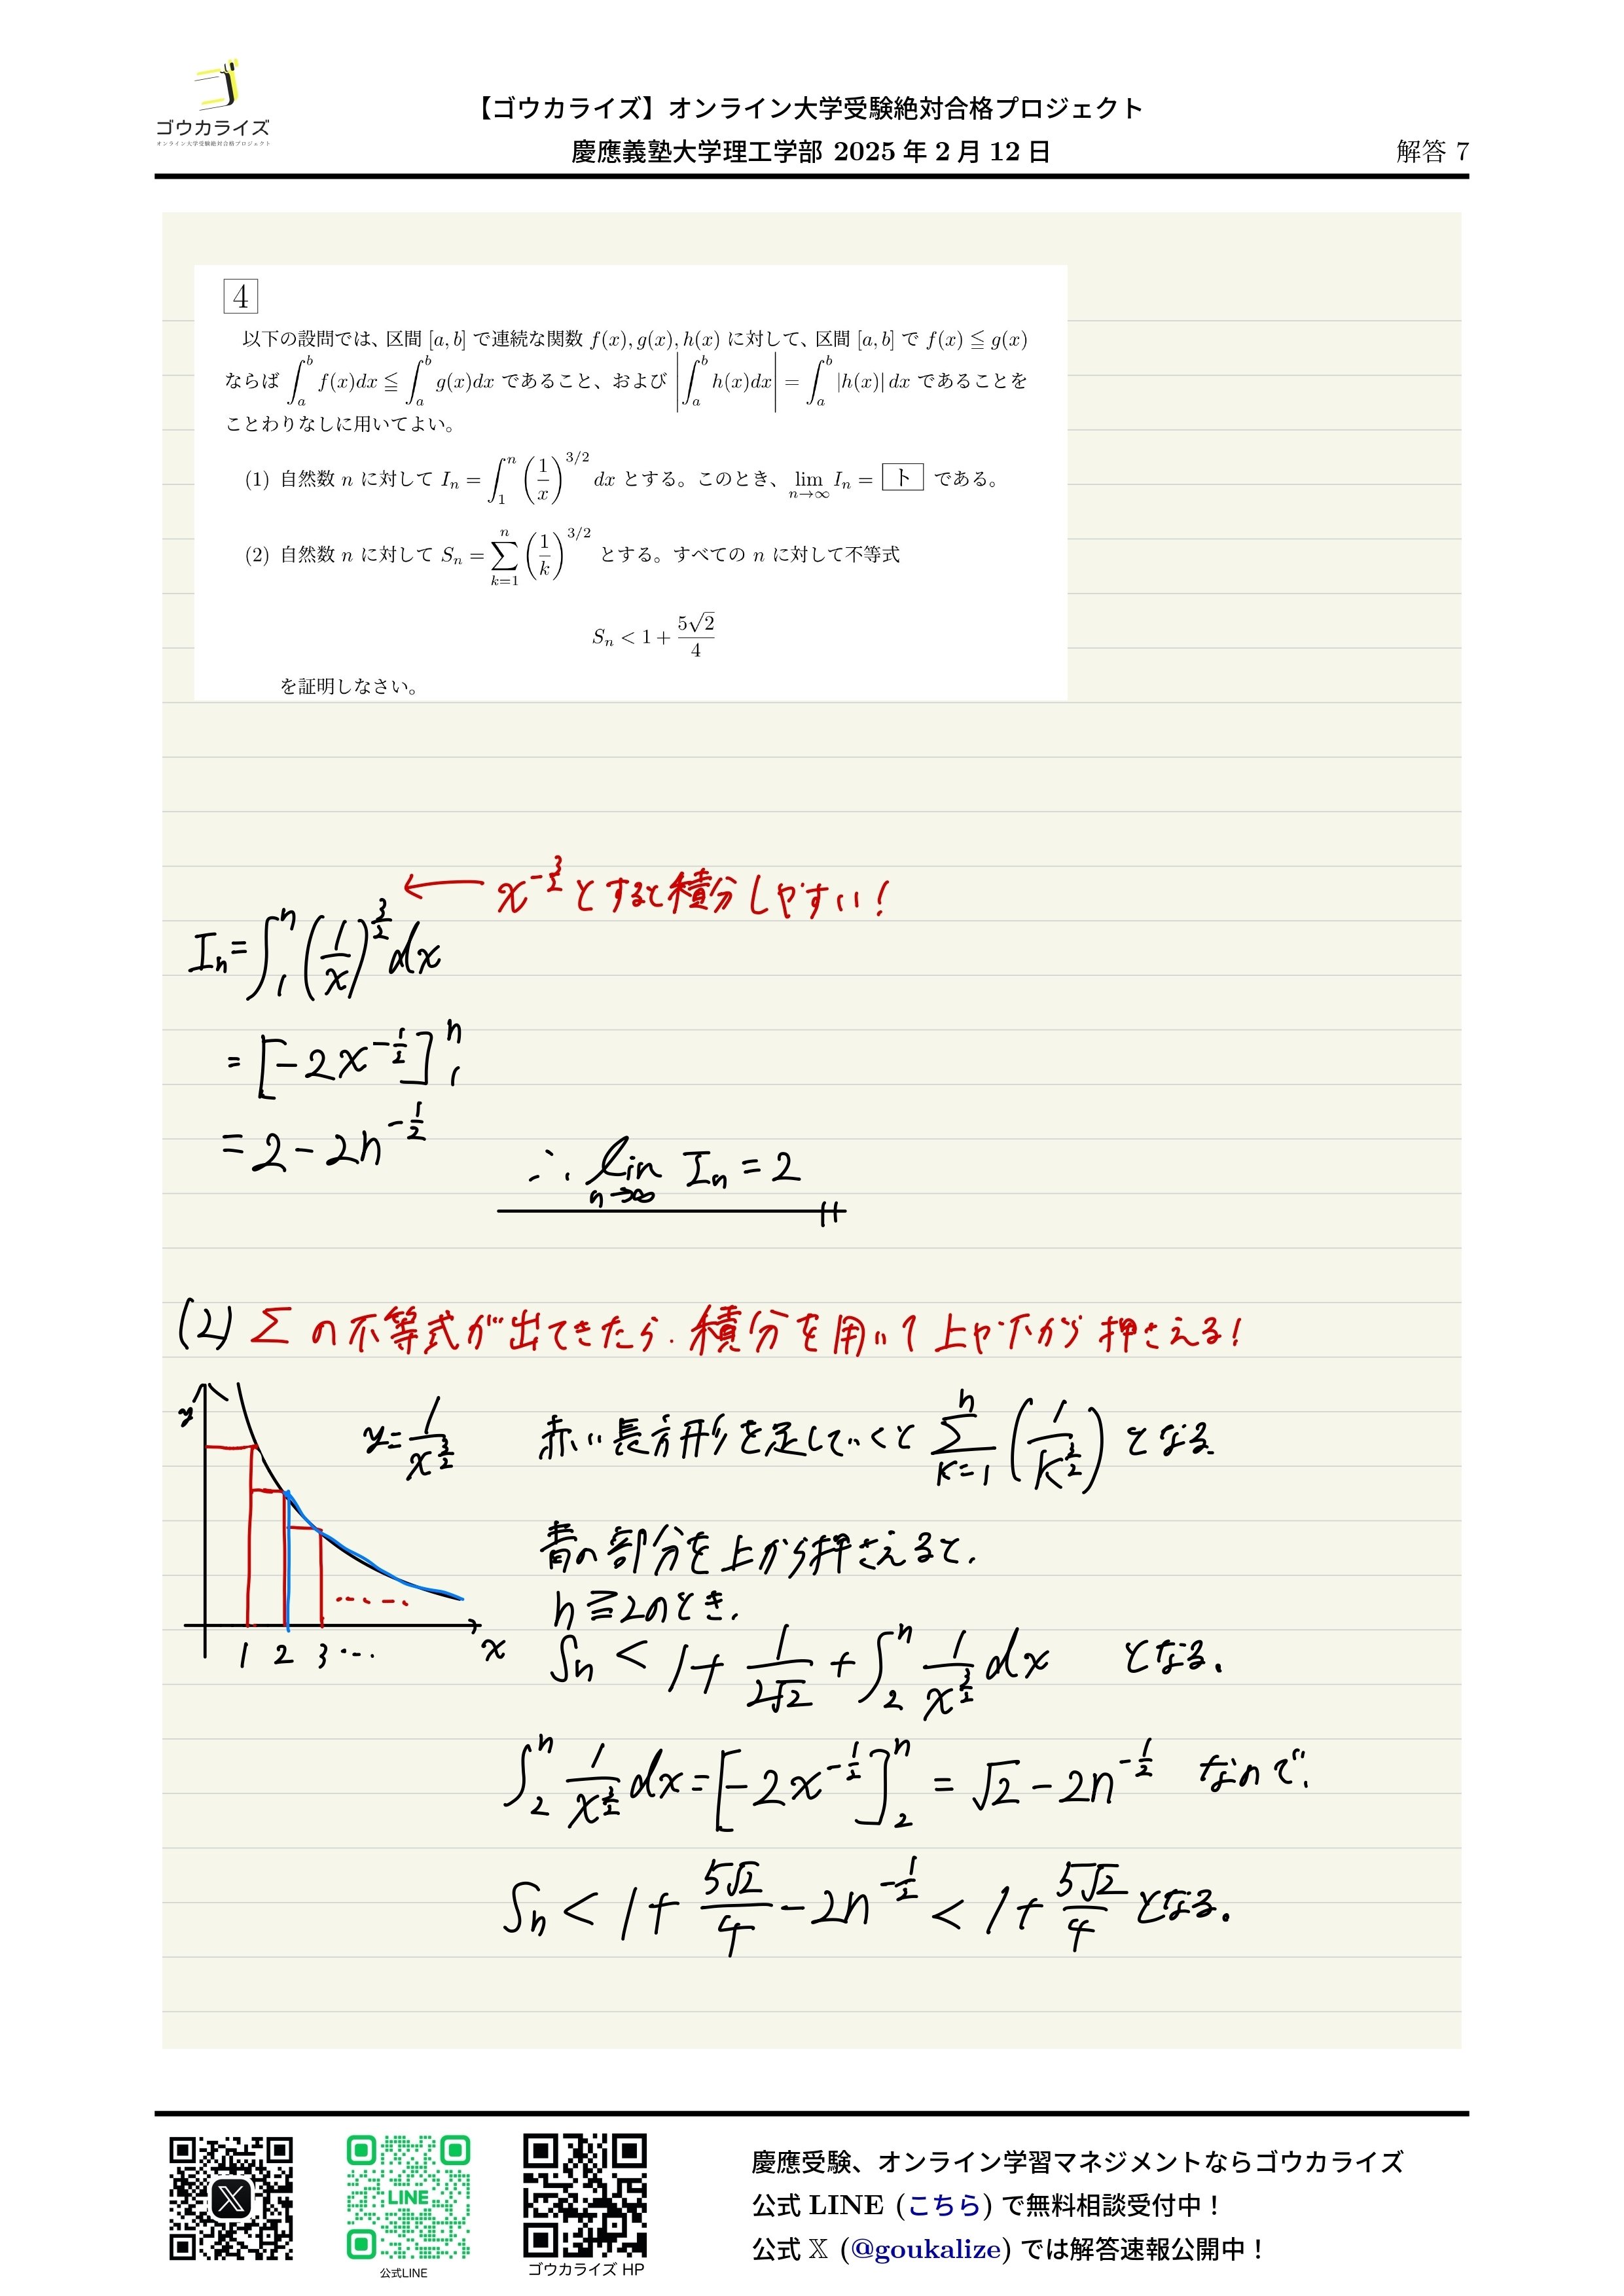 ゴウカライズ
オンライン大学受験絶対合格プロジェクト
【ゴウカライズ】オンライン大学受験絶対合格プロジェクト
慶應義塾大学理工学部 2025 年 2 月 12 日
解答 7
4
以下の設問では、区間 [a, b] で連続な関数 f(x), g(x), h(x) に対して、区間 [a, b] で f(x) ≦ g(x)
ならば ∫_a^b f(x)dx ≦ ∫_a^b g(x)dx であること、および |∫_a^b h(x)dx| = ∫_a^b |h(x)| dx であることを
ことわりなしに用いてよい。
(1) 自然数 n に対して I_n = ∫_1^n (1/x)^{3/2} dx とする。このとき、lim_{n→∞} I_n = ト である。
(2) 自然数 n に対して S_n = Σ_{k=1}^n (1/k)^{3/2} とする。すべての n に対して不等式
S_n < 1 + 5√2/4
を証明しなさい。
← x^{-3/2} とすると積分しやすい!
I_n = ∫_1^n (1/x)^{3/2} dx
= [-2x^{-1/2}]_1^n
= 2 - 2n^{-1/2}
∴ lim_{n→∞} I_n = 2
(2) Σ の不等式が出てきたら、積分を用いて上や下から押さえる!
y
y = 1/x^{3/2}
1 2 3 … x
赤い長方形を足していくと Σ_{K=1}^n (1/K^{3/2}) となる.
青の部分を上から押さえると、
n ≧ 2のとき、
S_n < 1 + 1/2√2 + ∫_2^n 1/x^{3/2} dx となる.
∫_2^n 1/x^{3/2} dx = [-2x^{-1/2}]_2^n = √2 - 2n^{-1/2} なので、
S_n < 1 + 5√2/4 - 2n^{-1/2} < 1 + 5√2/4 となる.
LINE
公式LINE
ゴウカライズ HP
慶應受験、オンライン学習マネジメントならゴウカライズ
公式 LINE (こちら) で無料相談受付中！
公式 𝕏 (@goukalize) では解答速報公開中！